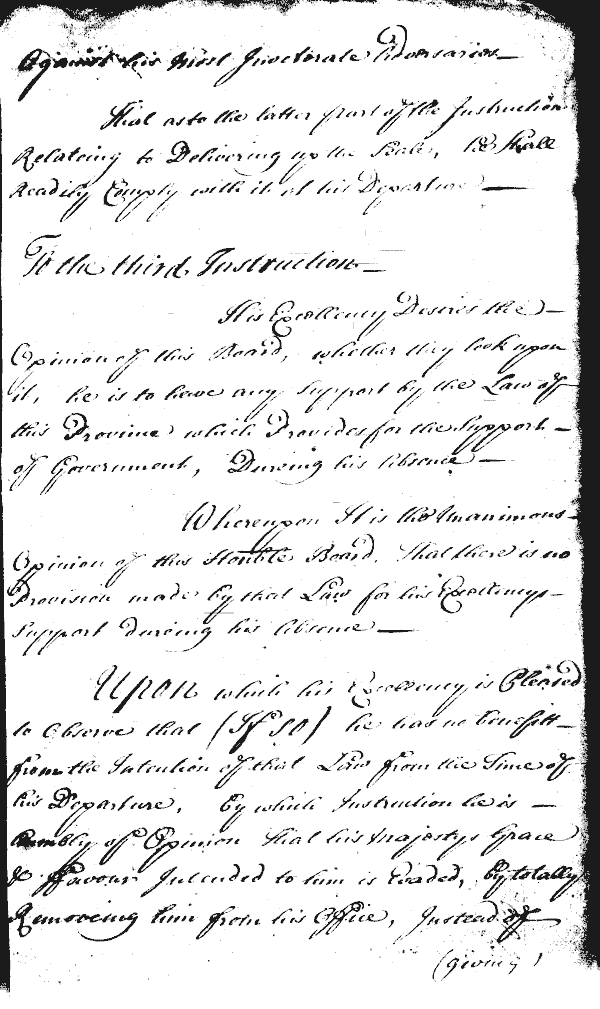 Against his most Inveterate Adversaries
That as to the latter part of the Instruction
Relateing to Delivering up the Seals, he shall
Readily Comply with it at his Departure
To the third Instruction
His Excellency Desires the
Opinion of this Board, whether they look upon
it, he is to have any Support by the Law of
this Province which Provides for the Support
of Government, During his Absence
Whereupon It is the Unanimous
Opinion of this Honble Board, That there is no
Provision made by that Law for his Excellencys
Support dureing his Absence
Upon which his Excellency is Pleased
to Observe that (If so) he has no benefitt
from the Intention of that Law from the Time of
his Departure, by which Instruction he is
humbly of Opinion that his Majestys Grace
& ffavour Intended to him is Evaded, by totally
Removeing him from his Office, Instead of
(giving)